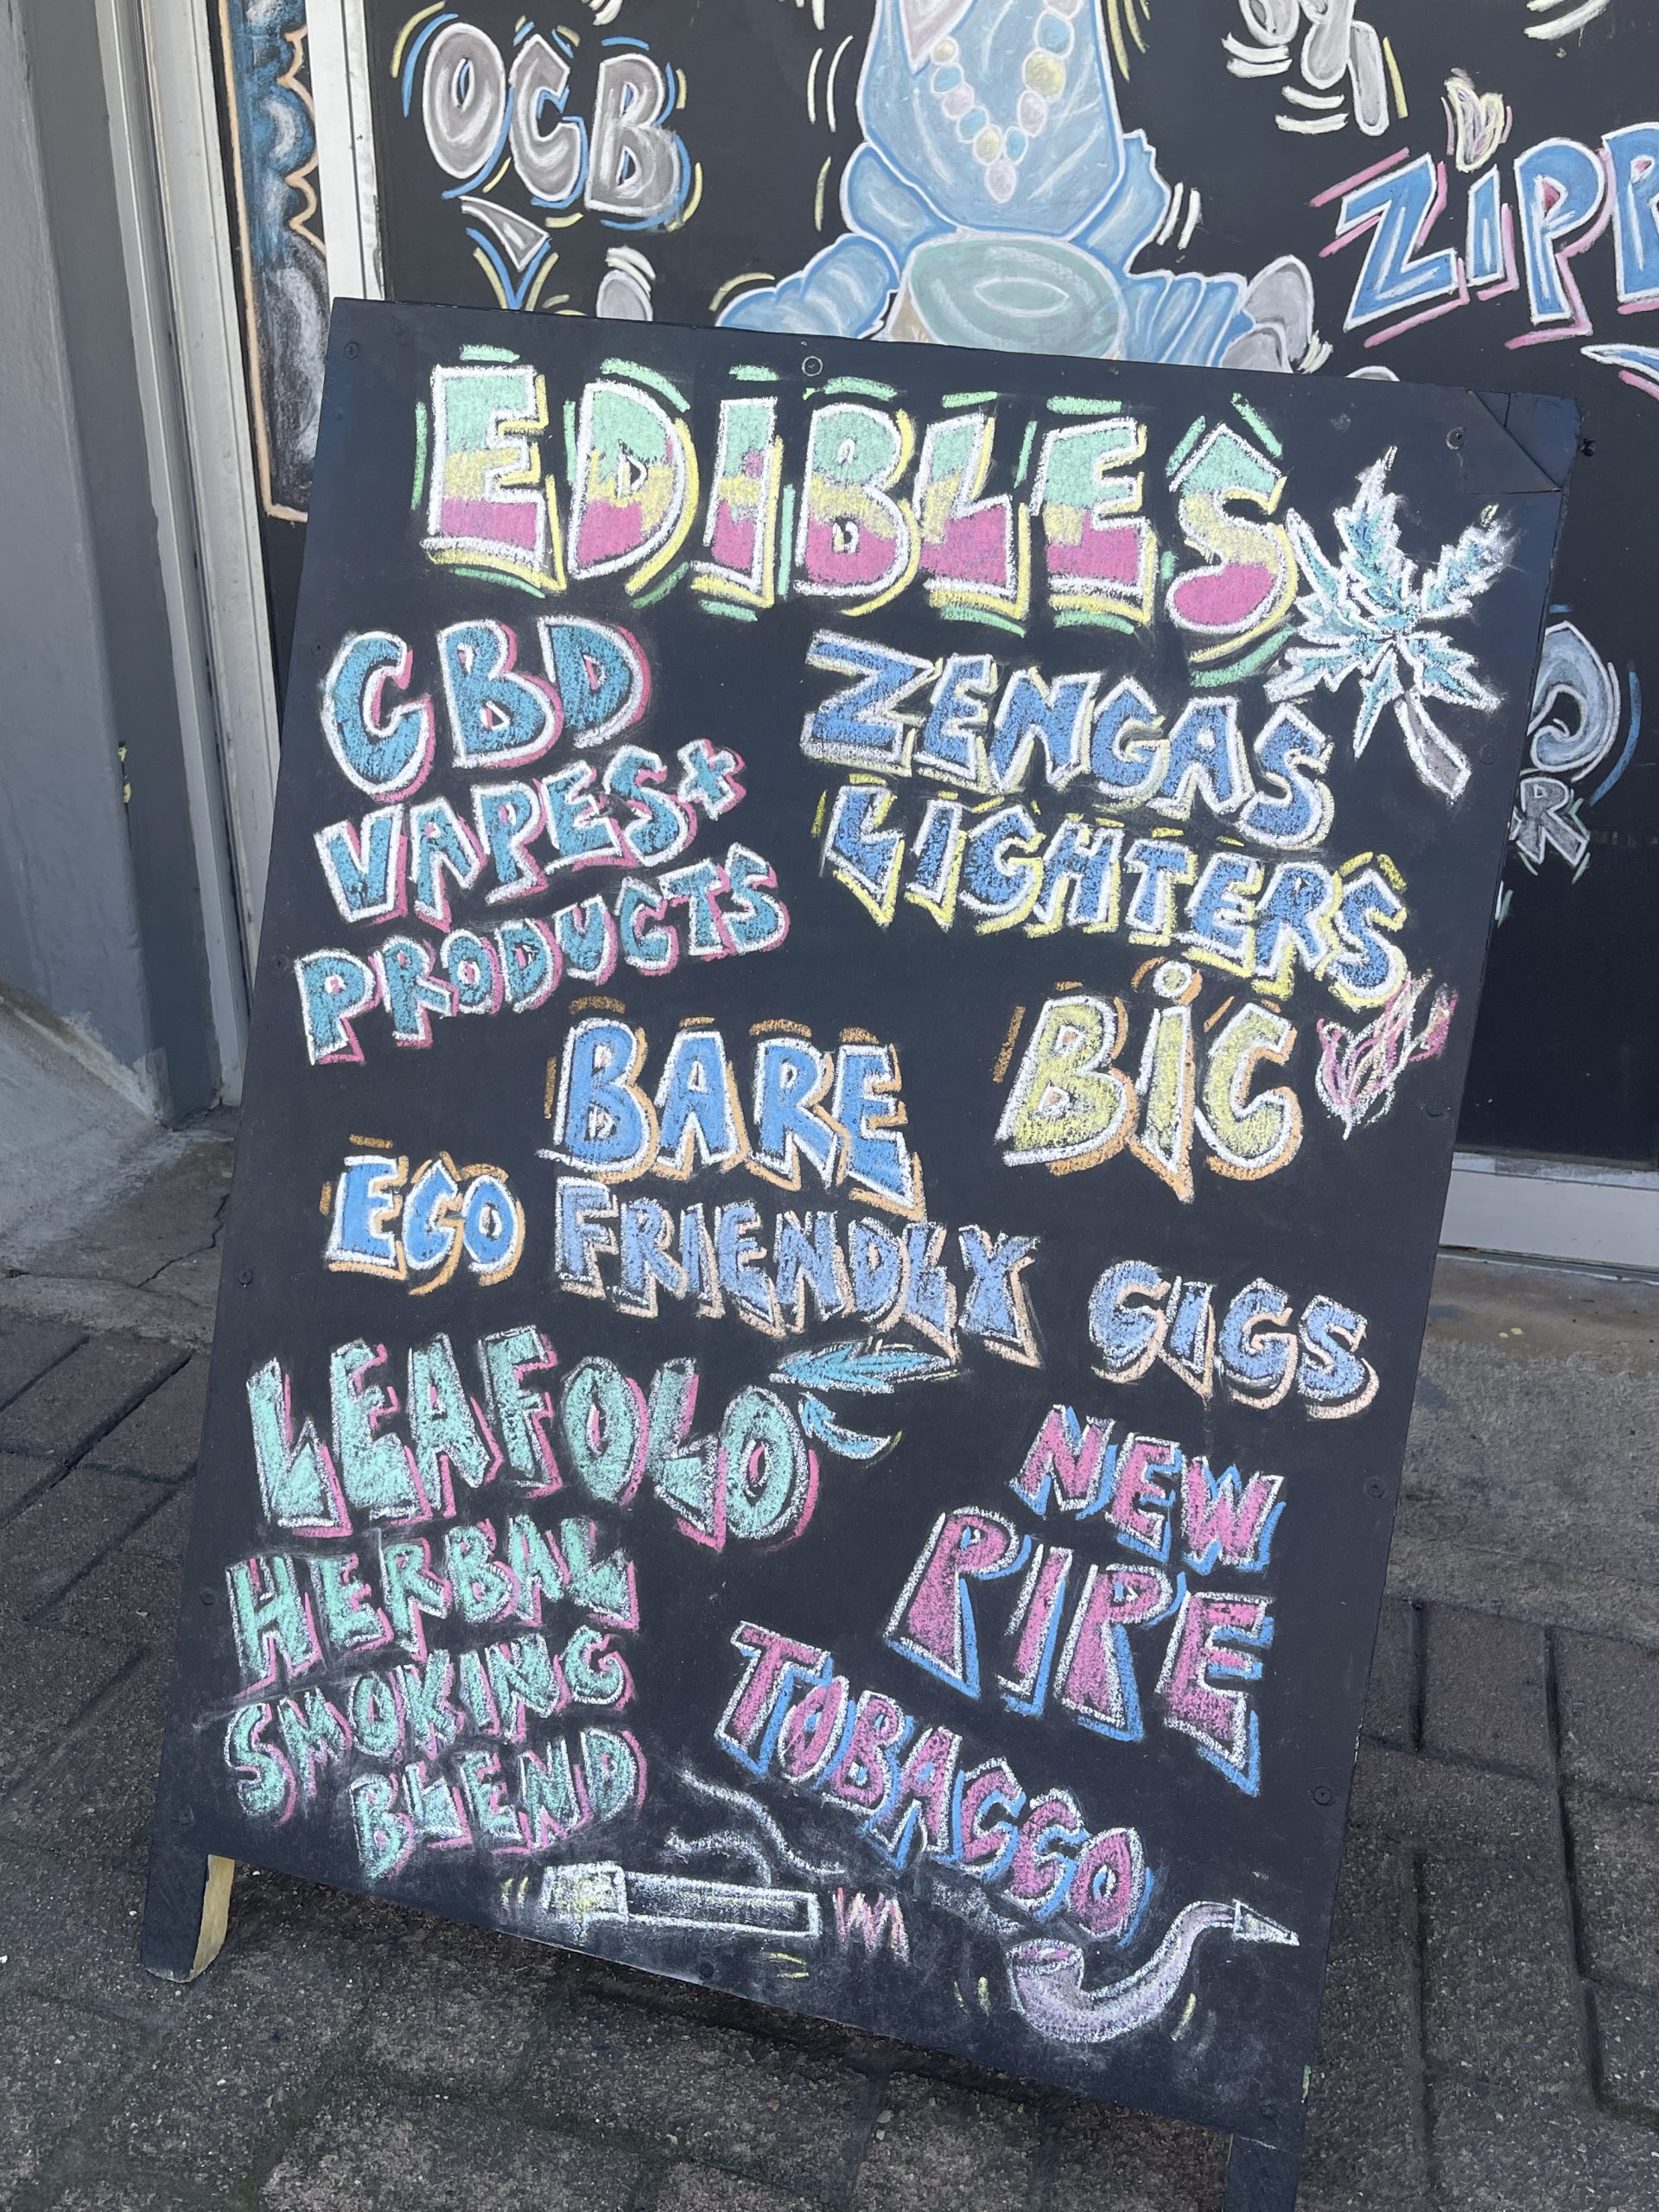 OCB
ZIPP
EDIBLES
CBD
VAPES+
PRODUCTS
ZENGAS
LIGHTERS
BIC
BARE
ECO FRIENDLY CIGS
LEAFOLO
HERBAL
SMOKING
BLEND
NEW
PIPE
TOBACCO